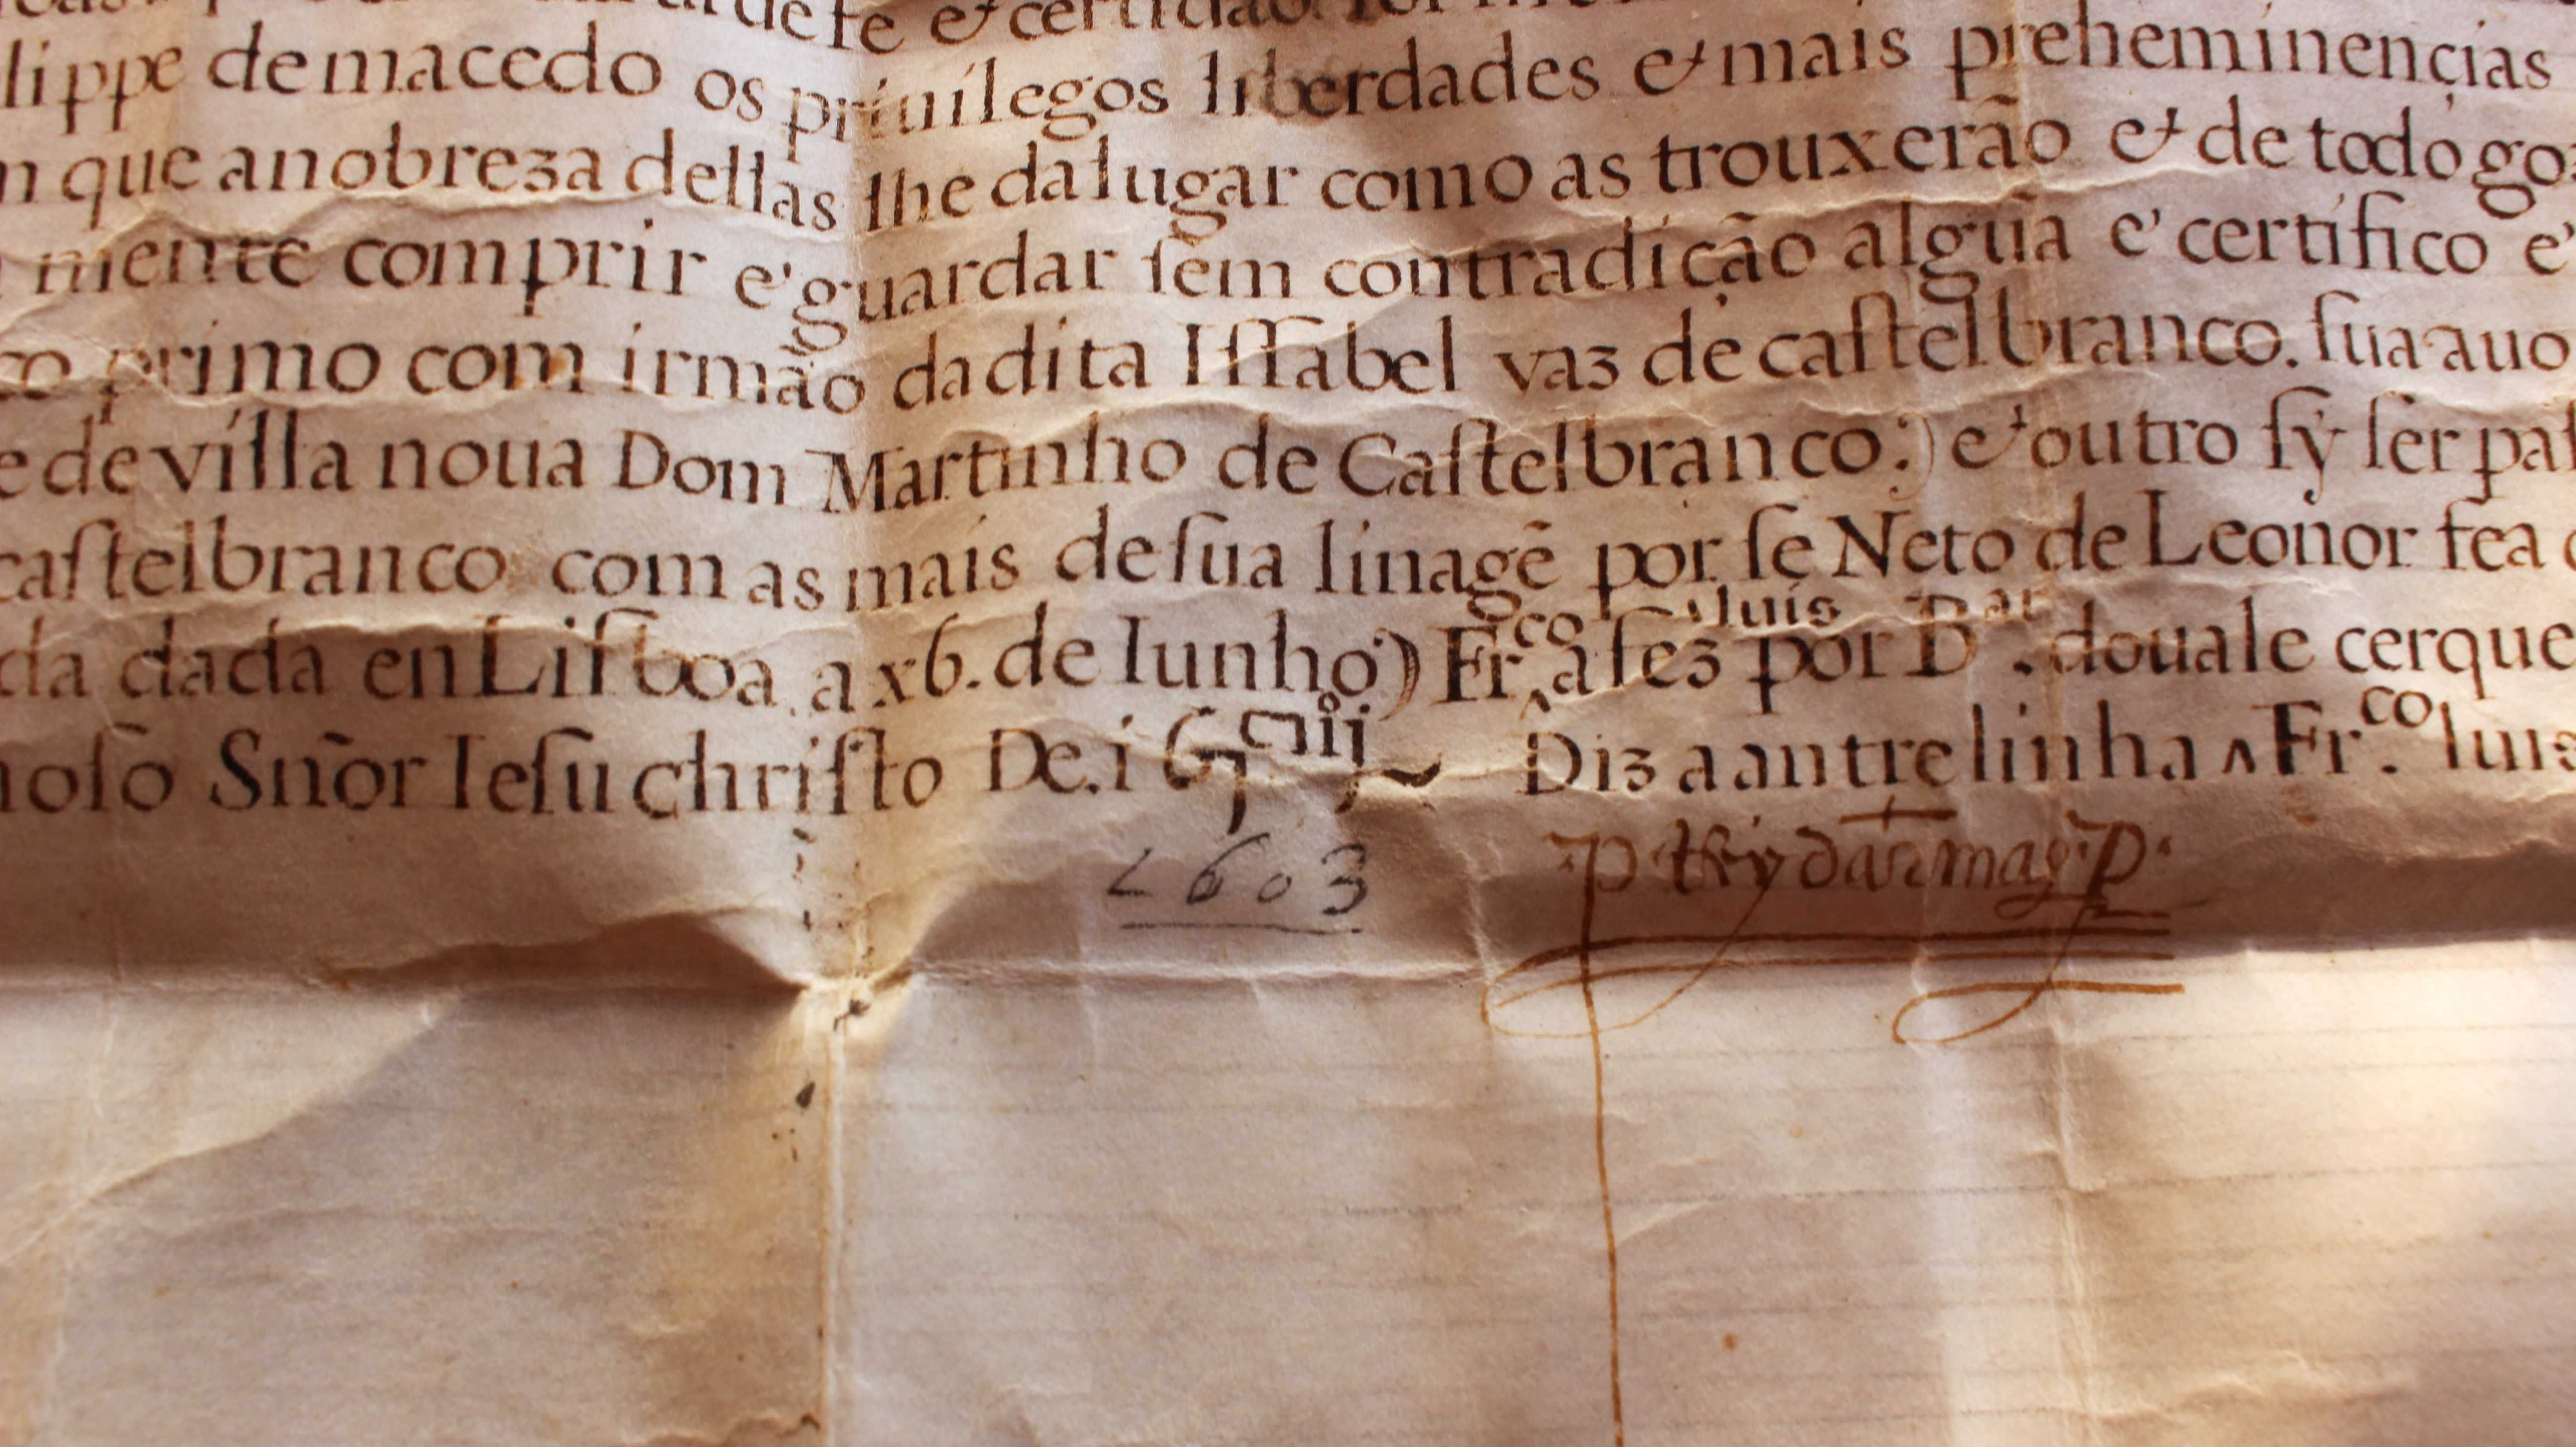 de fe & certidão.
lippe de macedo os priuilegos liberdades & mais preheminençias
que a nobreza dellas lhe da lugar como as trouxerão & de todo
mente comprir e guardar ſem contradição algũa e certifico e
primo com irmão da dita Iſſabel vaz de caſtelbranco. ſua auo
e de villa noua Dom Martinho de Caſtelbranco:) & outro ſy ſer
caſtelbranco com as mais de ſua linagẽ por ſe Neto de Leonor fea
luis
da dada en Lisboa. a xb. de Iunho) Fr.co a fez por Bar. douale cerque
noſo Sñor Ieſu chriſto De. i
Diz a antrelinha ^ Fr.co luis
1603